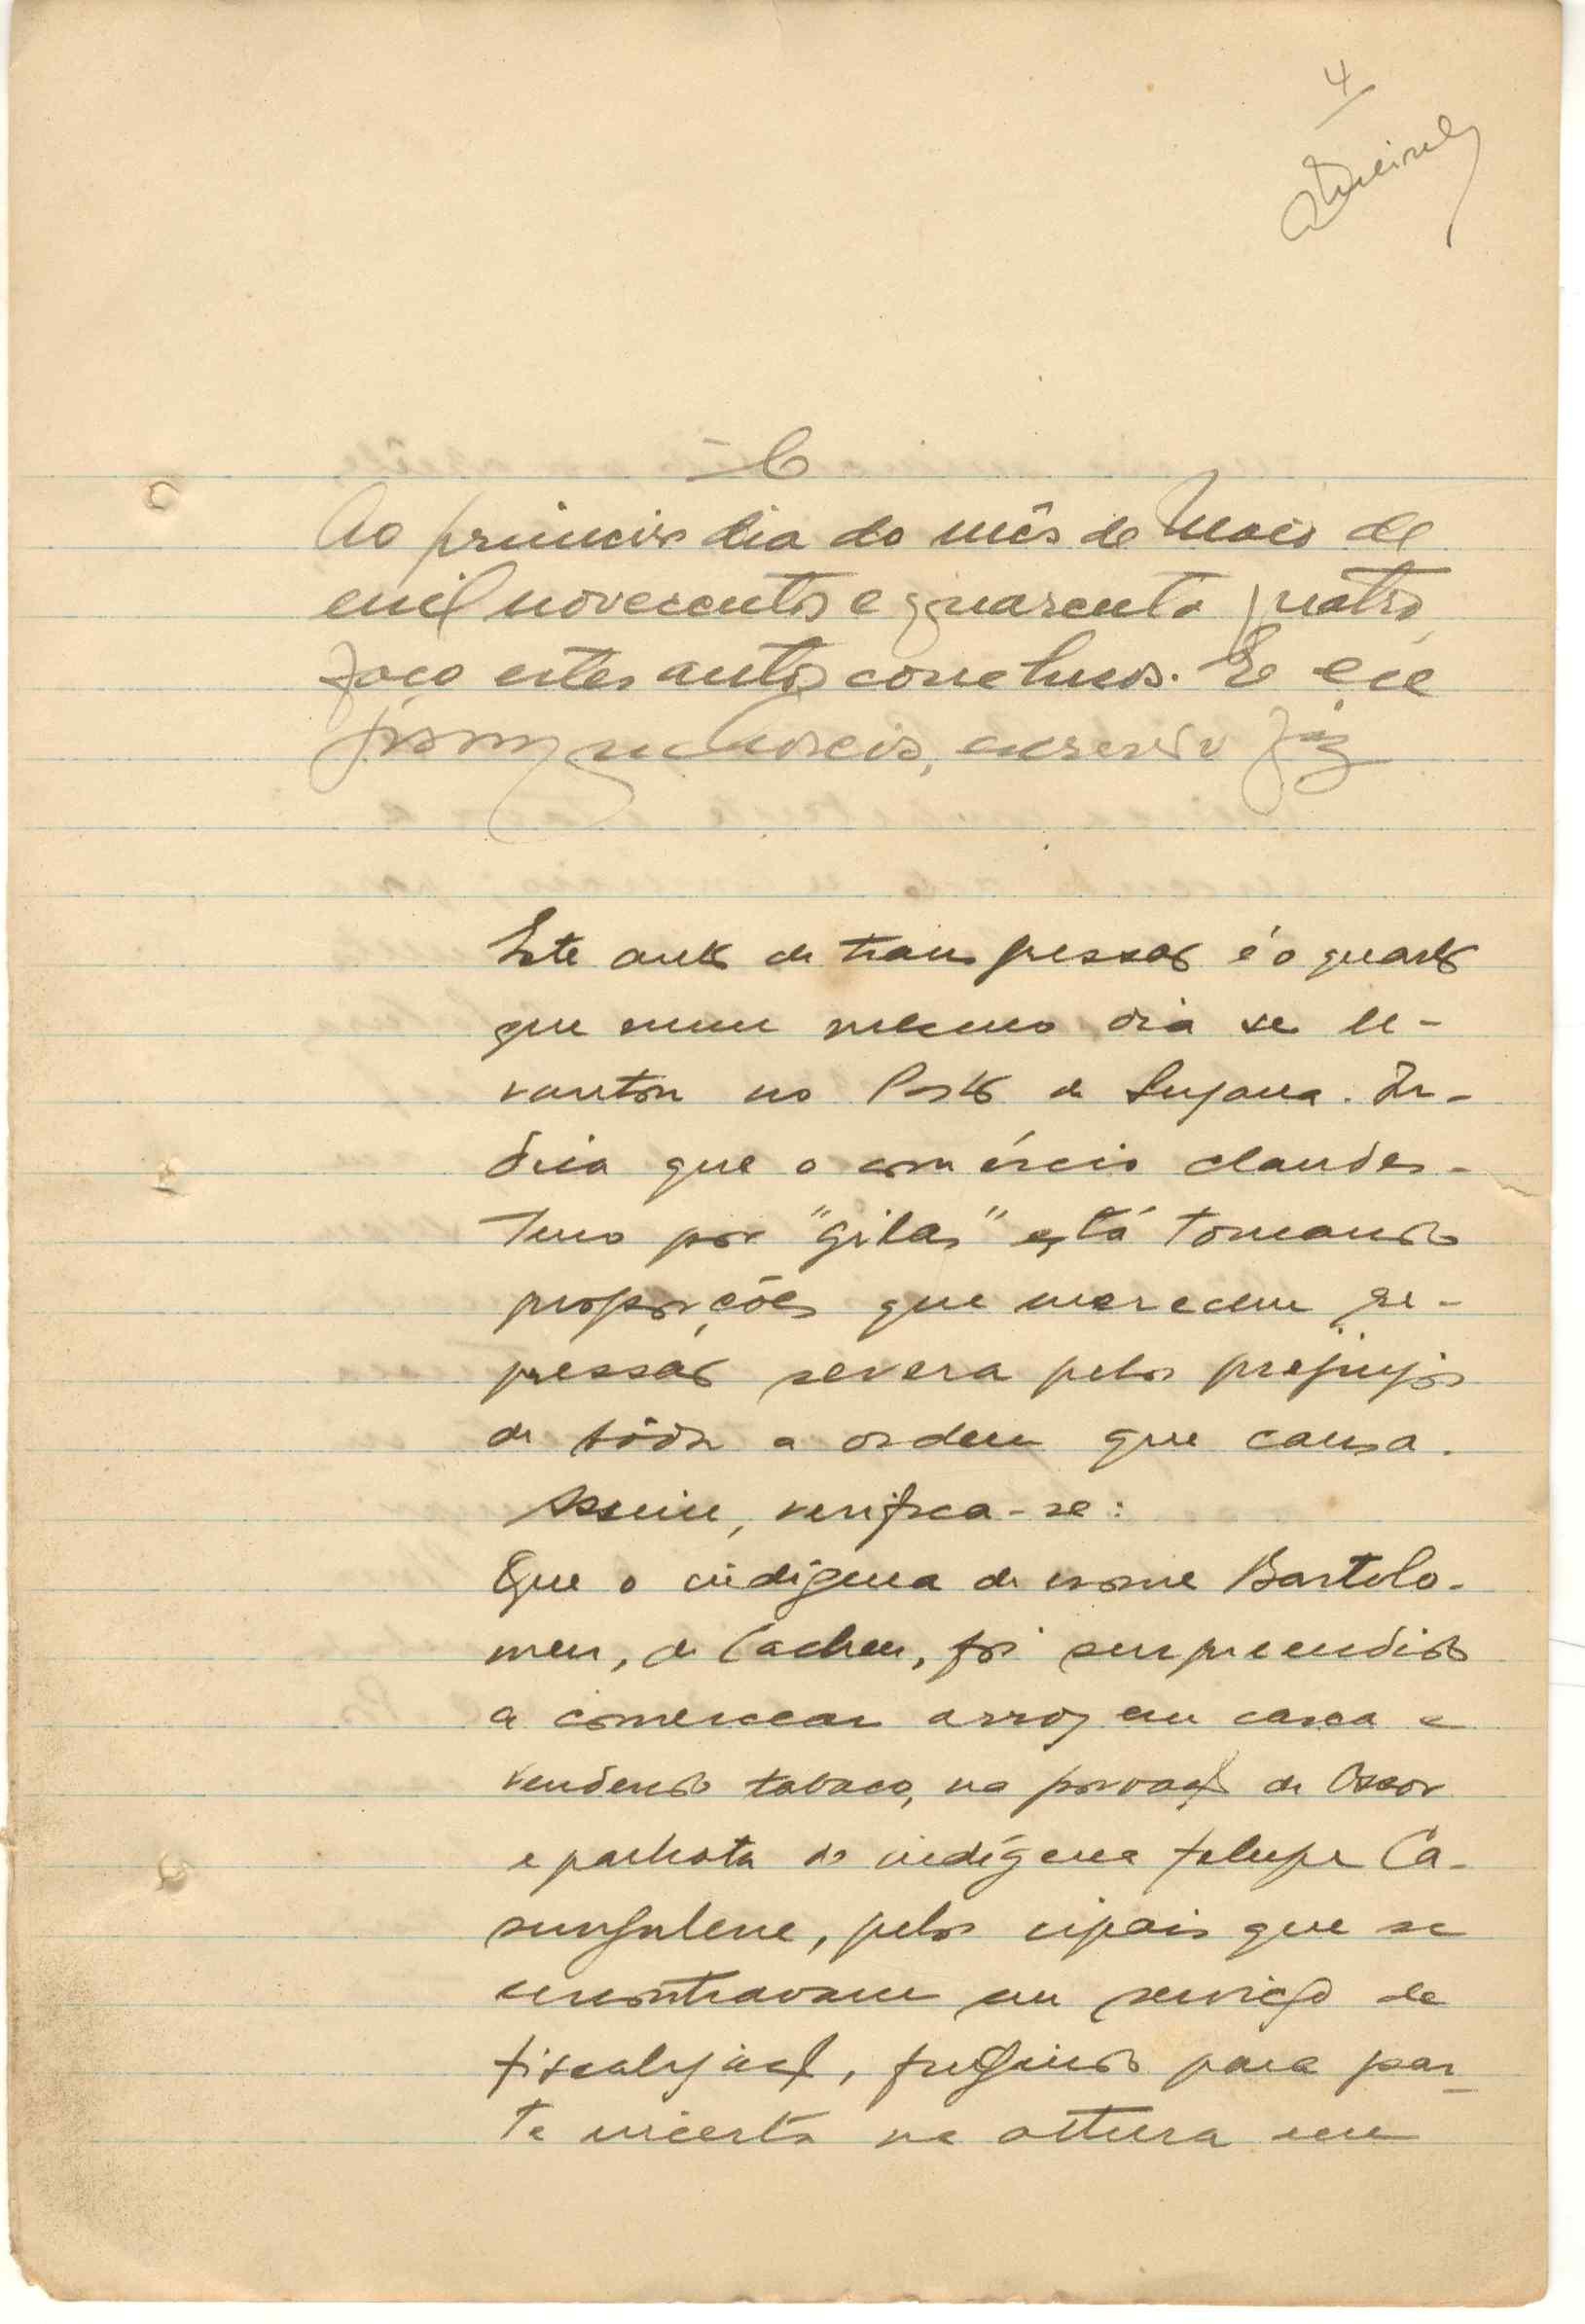 4
Queiroz
Ao primeiro dia do mês de Maio de
mil novecentos e quarenta quatro
faço estes autos conclusos. E eu
escrivão fiz
Este auto de transgressão é o quarto
que num mesmo dia se le-
vantou no Posto de Suzana. In-
dica que o comércio clandes-
tino por "gilas" está tomando
proporções que merecem re-
pressão severa pelos prejuízos
de tôda a ordem que causa.
Assim, verifica-se:
Que o indígena de nome Bartolo-
meu, de Cacheu, foi surpreendido
a comerciar arroz em casca e
vendendo tabaco, na povoação de Ossor
e palhota do indígena felupe Ca-
sungulene, pelos cipais que se
encontravam em serviço de
fiscalização, fugindo para par-
te incerta na altura em